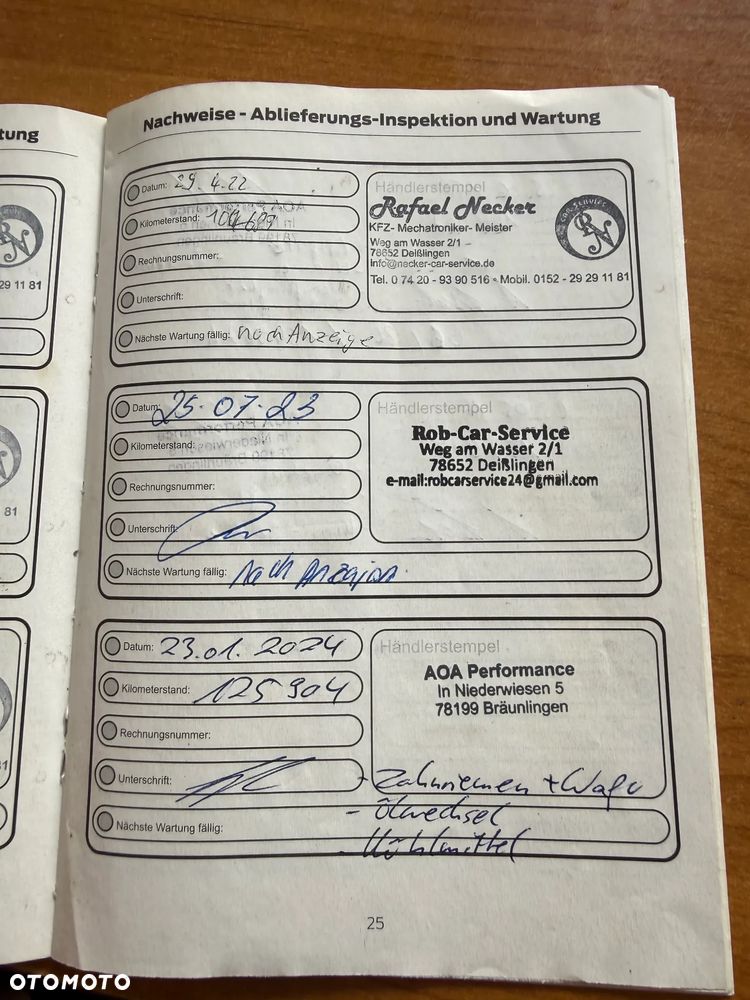 tung
29 11 81
81
Nachweise - Ablieferungs-Inspektion und Wartung
Datum: 29.4.22
Kilometerstand:
Rechnungsnummer:
Unterschrift:
Nächste Wartung fällig: nach Anzeige
Händlerstempel
Rafael Necker
KFZ- Mechatroniker- Meister
Weg am Wasser 2/1
78652 Deißlingen
info@necker-car-service.de
Tel. 0 74 20 - 93 90 516 - Mobil. 0152 - 29 29 11 81
CAR-SERVICE
RN
Datum: 25.07.23
Kilometerstand:
Rechnungsnummer:
Unterschrift:
Nächste Wartung fällig: nach Anzeige.
Händlerstempel
Rob-Car-Service
Weg am Wasser 2/1
78652 Deißlingen
e-mail:robcarservice24@gmail.com
Datum: 23.01.2024
Kilometerstand: 125904
Rechnungsnummer:
Unterschrift:
Nächste Wartung fällig:
Händlerstempel
AOA Performance
In Niederwiesen 5
78199 Bräunlingen
- Zahnriemen + WaPu
- Ölwechsel
- Kühlmittel
25
OTOMOTO